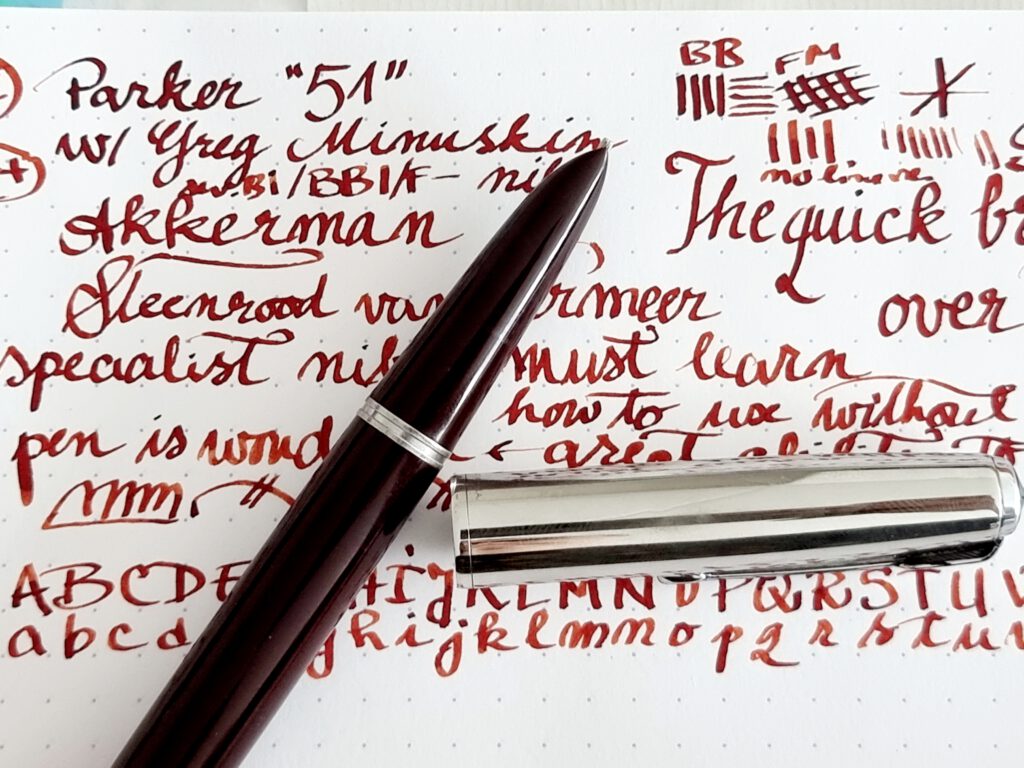 Parker "51"
w/ Greg Minuskin
BBI/F- nib
Akkerman
Steenrood van Vermeer
specialist nib must learn
how to use without
pen is wond ← great ability to
BB
FM
no line
The quick
over
A B C D E H I J K L M N O P Q R S T U V
a b c d g h i j k l m n o p q r s t u v